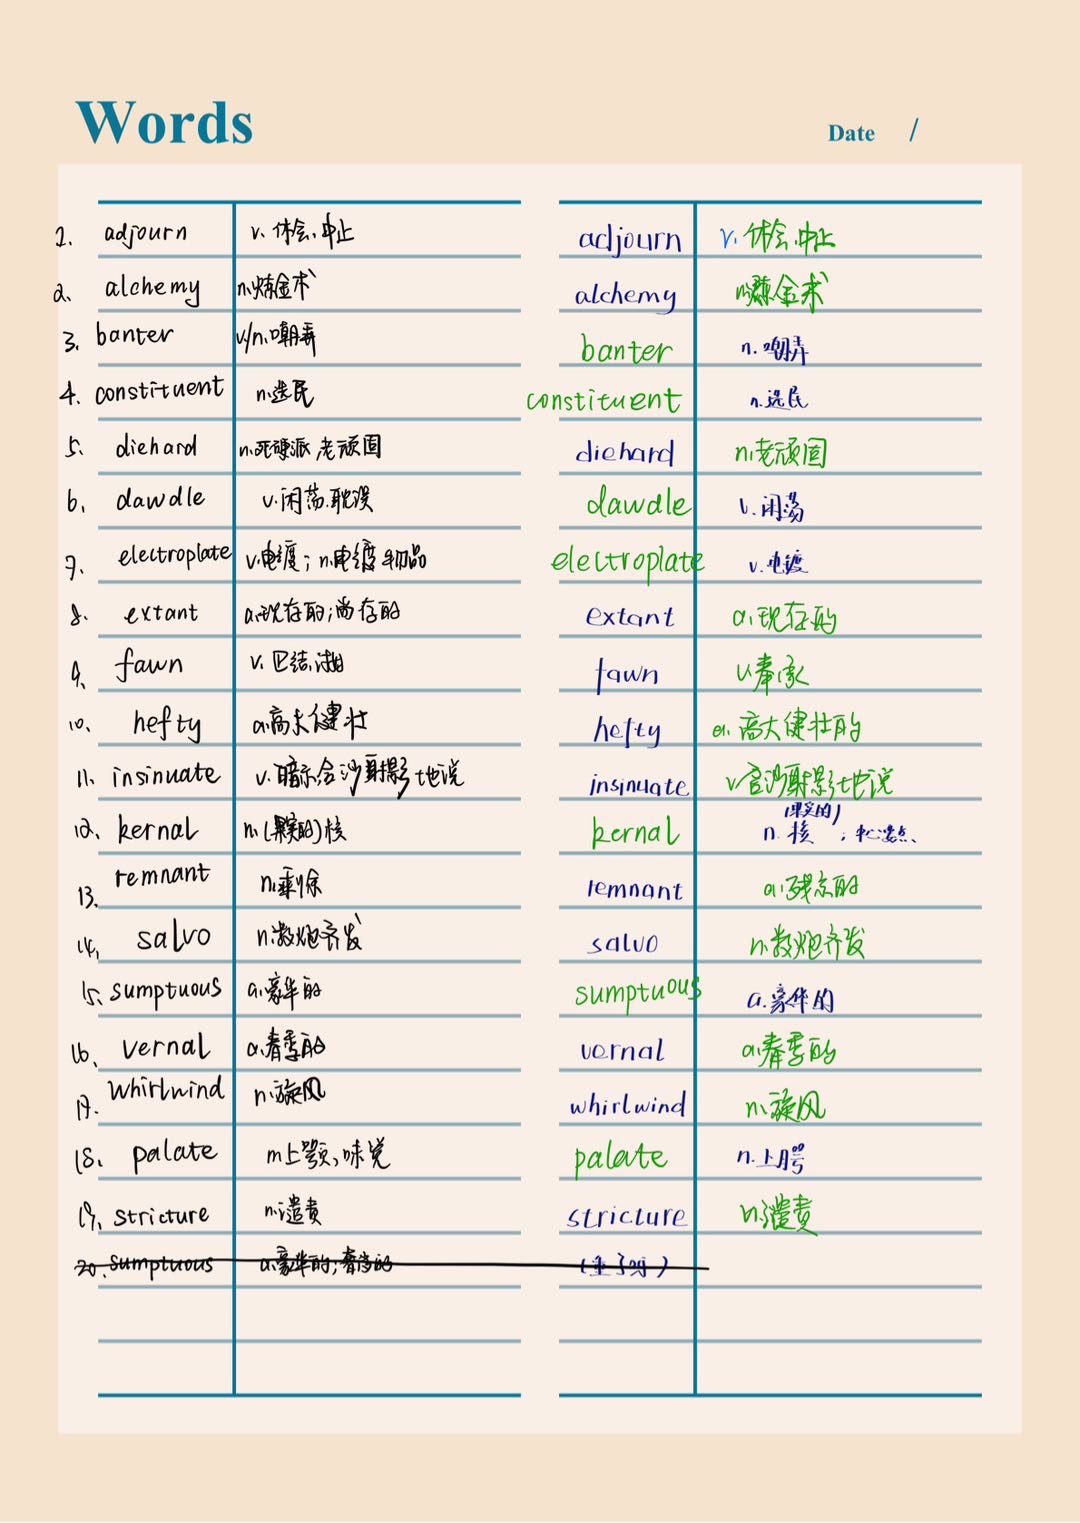 Words
Date /
1. adjourn v. 休会,中止 adjourn v. 休会,中止
2. alchemy n.炼金术 alchemy n.炼金术
3. banter v/n.嘲弄 banter n.嘲弄
4. constituent n.选民 constituent n.选民
5. diehard n.死硬派,老顽固 diehard n.老顽固
6. dawdle v.闲荡,耽误 dawdle v.闲荡
7. electroplate v.电镀;n.电镀物品 electroplate v.电镀
8. extant a.现存的;尚存的 extant a.现存的
9. fawn v.巴结, fawn v.奉承
10. hefty a.高大健壮 hefty a.高大健壮的
11. insinuate v.暗示,含沙射影地说 insinuate v.含沙射影地说
12. kernal n.(果实的)核 kernal n.(果实的)核;中心要点
13. remnant n.剩余 remnant a.残余的
14. salvo n.数炮齐发 salvo n.数炮齐发
15. sumptuous a.豪华的 sumptuous a.豪华的
16. vernal a.春季的 vernal a.春季的
17. whirlwind n.旋风 whirlwind n.旋风
18. palate n.上颚,味觉 palate n.上腭
19. stricture n.谴责 stricture n.谴责
20. sumptuous a.豪华的;奢侈的